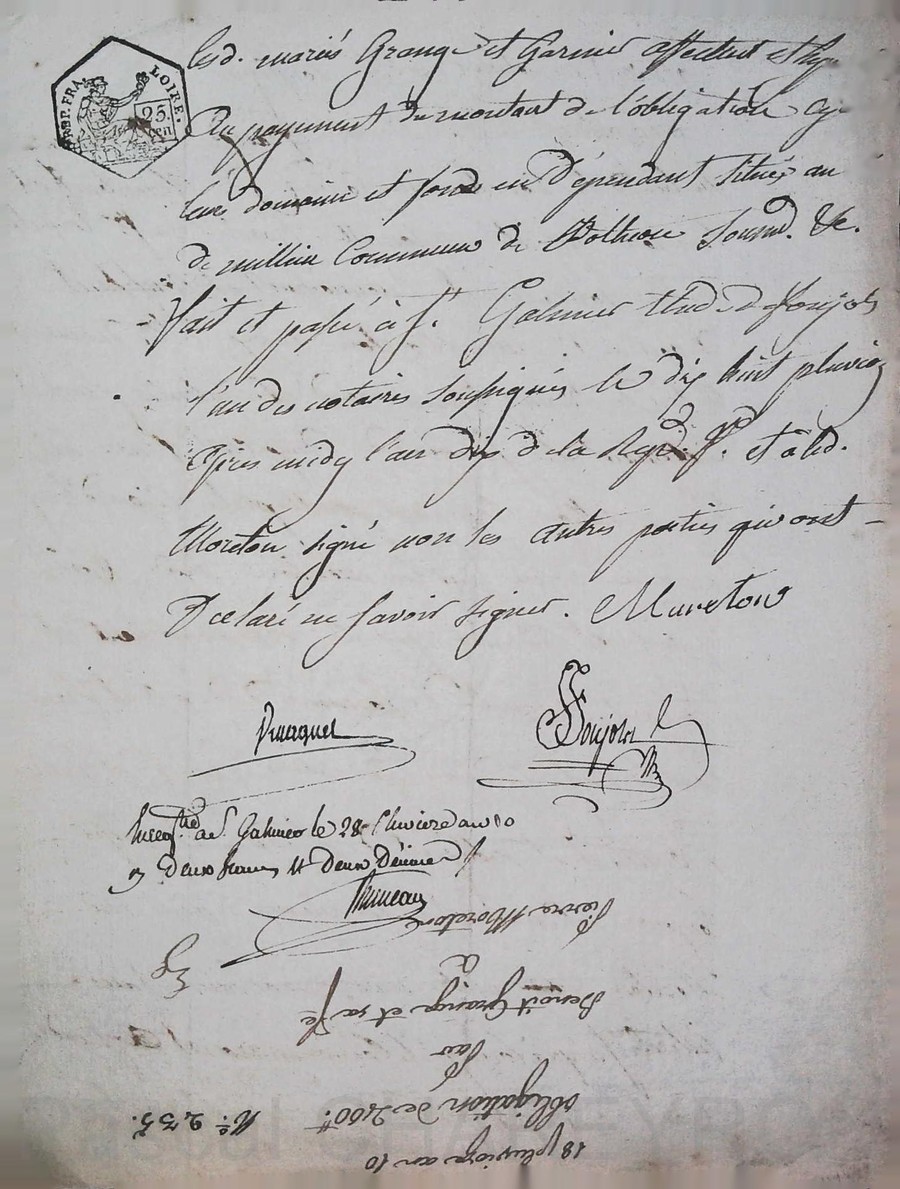 RÉP. FRA.
LOIRE.
25.
CEN
lesd. mariés Grange et Garnier affectent et hyp
au payement du montant de l'obligation cy
leur domaine et fonds en dépendant situés au
de millieu Commune de soumd. &c.
fait et passé à St. Galmier Etude de Soujol
l'un des notaires soussignés le dix huit pluvio
après midy l'an dix de la Repd. f. et a led.
Moreton signé non les autres parties qui ont
Declaré ne savoir signer. Mureton
Soujol
Enregtré a St. Galmier le 28 Pluviose an 10
deux francs et deux Décimes
Pierre Moreton
a
Benoit Grange et sa fe
Par
obligation de 2400# N° 235.
18 pluviose an 10